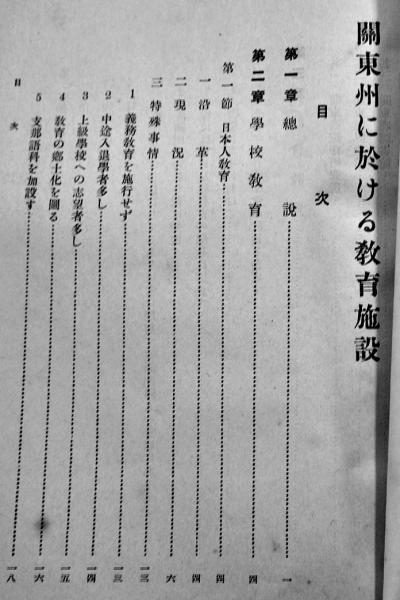 關東州に於ける敎育施設
目次
第一章 總說 一
第二章 學校敎育 四
第一節 日本人敎育 四
一 沿革 四
二 現況 六
三 特殊事情 一三
1 義務敎育を施行せず 一三
2 中途入退學者多し 一四
3 上級學校への志望者多し 一五
4 敎育の鄕土化を圖る 一六
5 支那語科を加設す 一八
目次